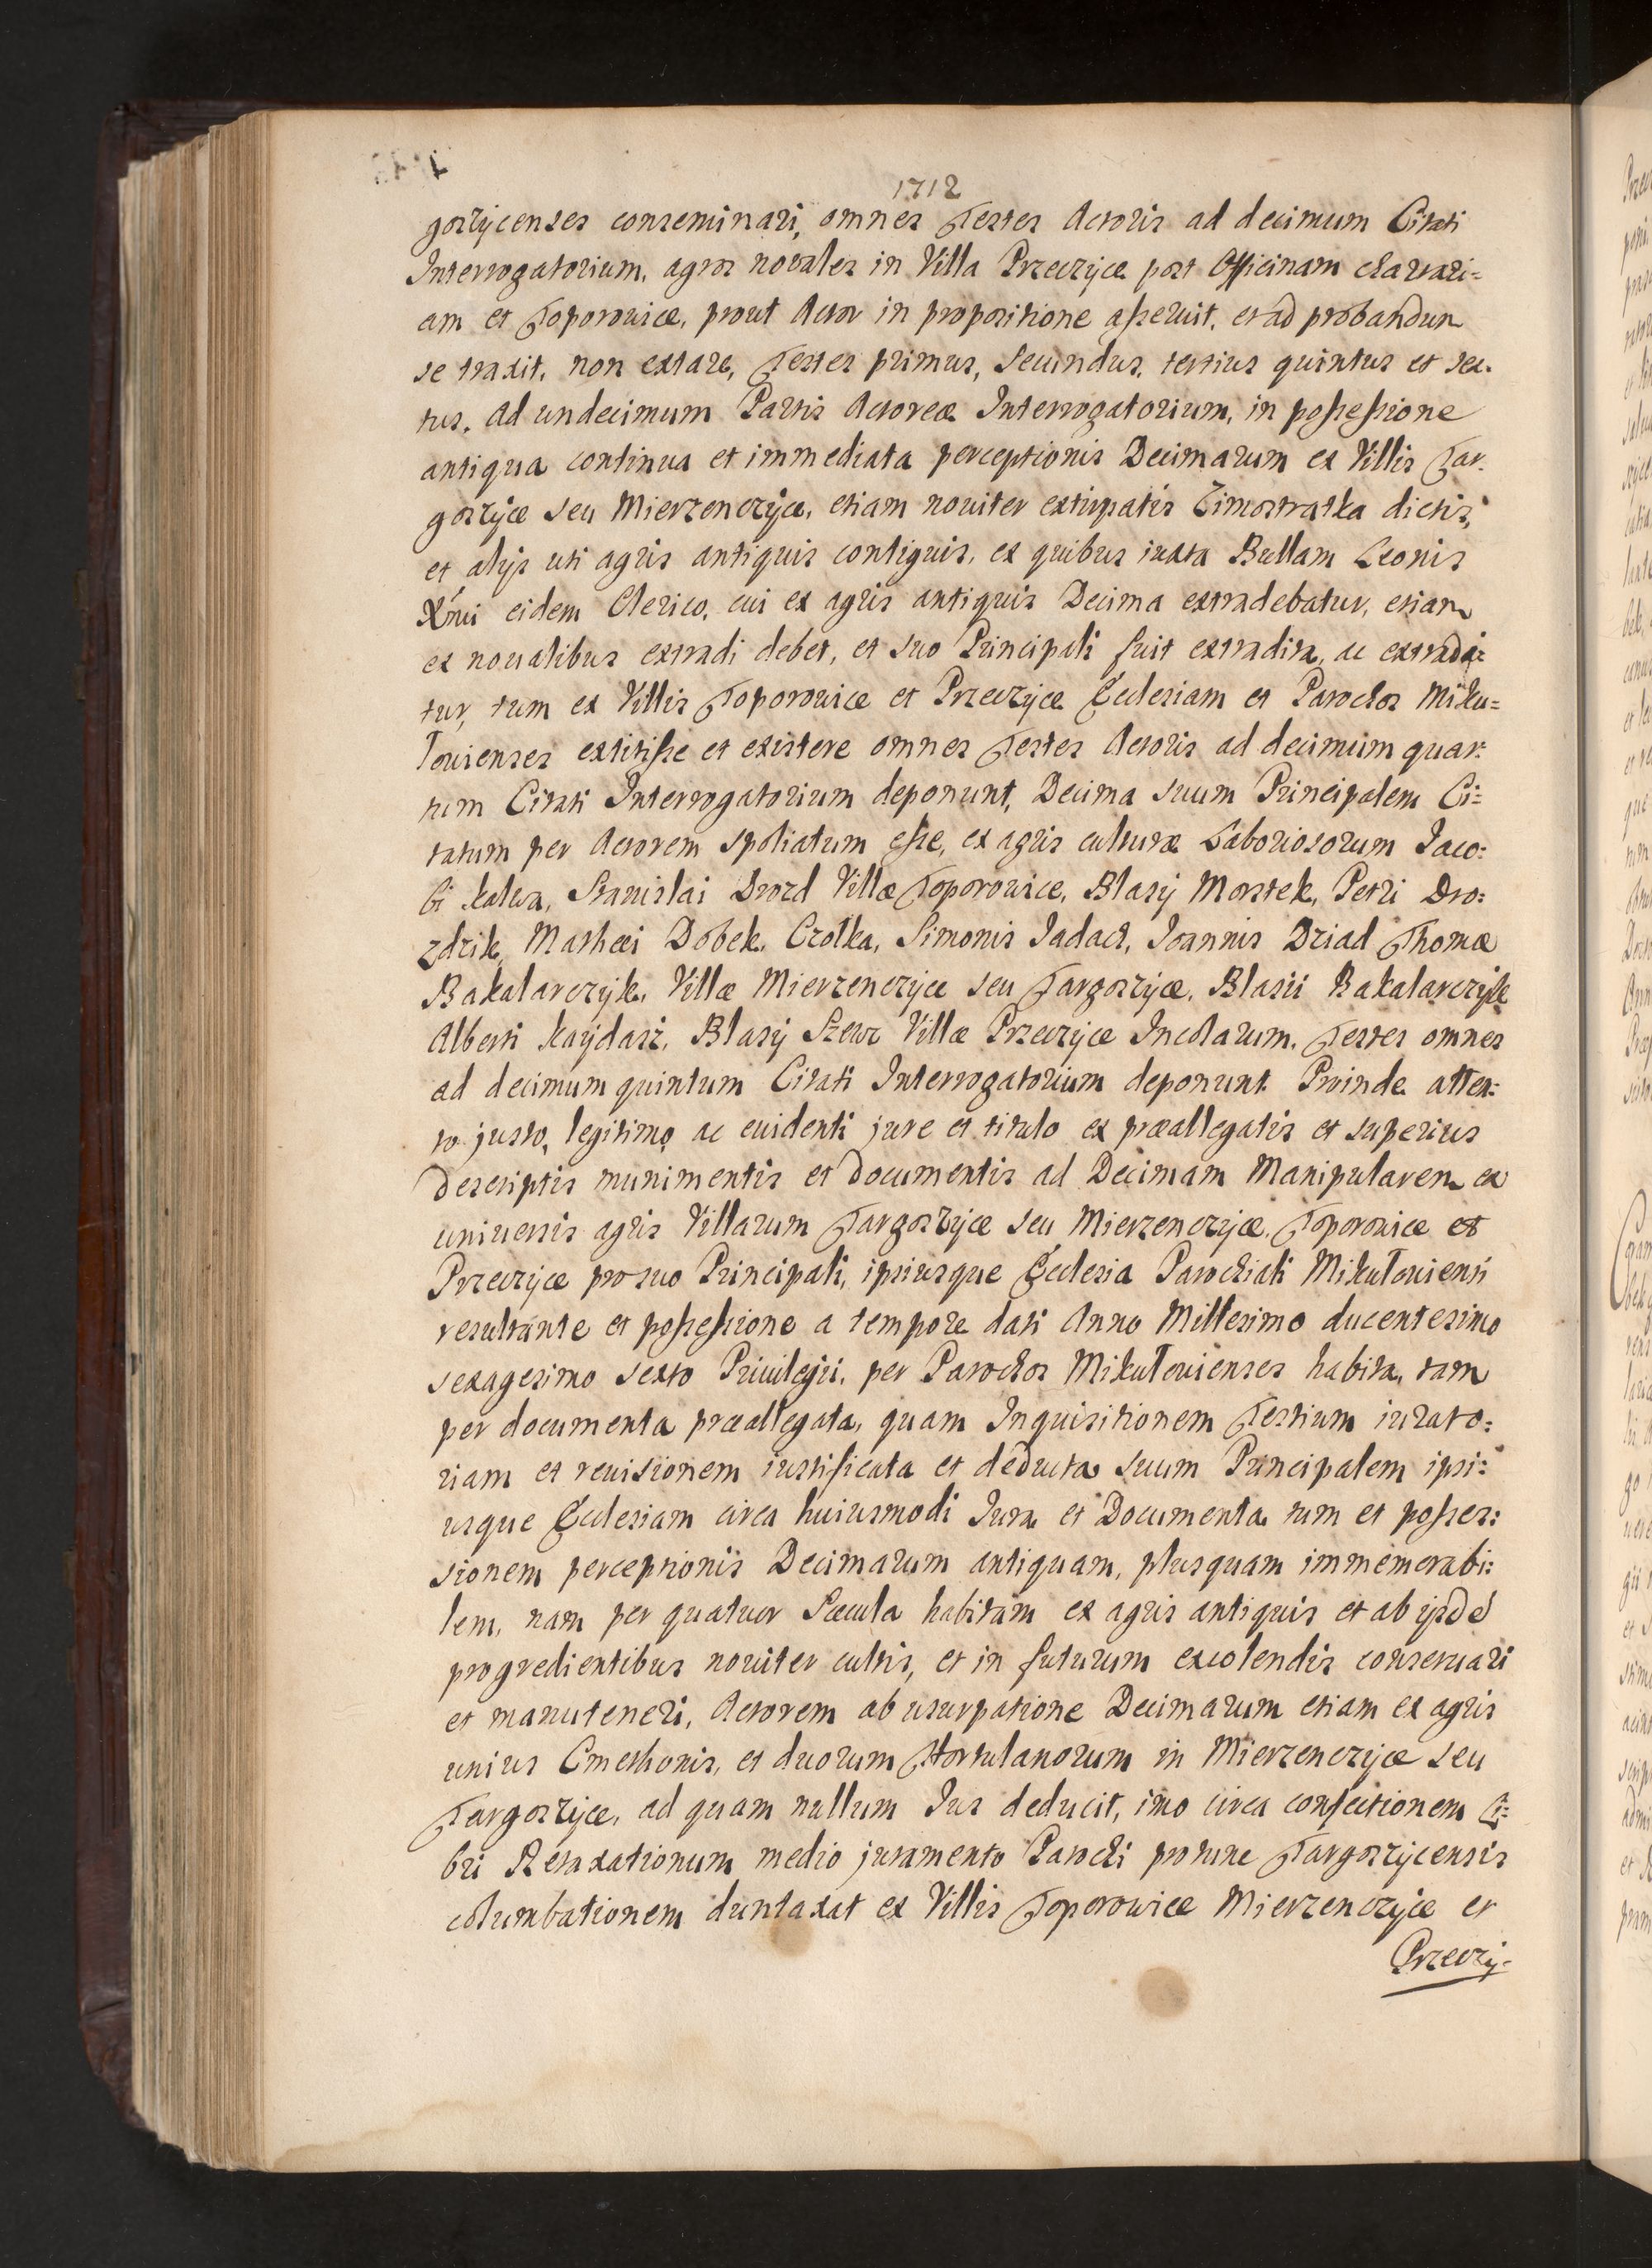 1712
goszycenses conseminari, omnes Testes Actoris ad decimum Citati
Interrogatorium, agros novales in Villa Przeczyce post Officinam chartari=
am et Toporowice, prout Actor in propositione asseruit, et ad probandum
se traxit, non extare, Testes primus, Secundus, tertius quintus et sex.
tus. Ad undecimum Partis Actoreæ Interrogatorium, in possessione
antiqua continua et immediata perceptionis Decimarum ex Villis Tar.
goszyce seu Mierzenczyce, etiam noviter extirpatis Zimostratka dictis,
et alijs uti agris antiquis contiguis, ex quibus iuxta Bullam Leonis
Xmi eidem Clerico, cui ex agris antiquis Decima extradebatur, etiam
ex novalibus extradi debet, et suo Principali fuit extradita, ac extradi=
tur, tum ex Villis Toporowice et Przeczyce Ecclesiam et Parochos Miku=
lovienses extitisse et existere omnes Testes Actoris ad decimum quar:
tum Citati Interrogatorium deponunt, Decima suum Principalem Ci=
tatum per Actorem spoliatum esse, ex agris culturæ Laboriosorum Jaco:
bi Kalwa, Stanislai Drozd Villæ Toporowice, Blasij Mostek, Petri Dro:
zdzik, Mathæi Dobek, Czolka, Simonis Jadach, Joannis Dziad Thomæ
Bakalarczyk, Villæ Mierzenczyce seu Targoszyce, Blasii Bakalarczyk
Alberti Kaydasz, Blasij Szewc Villæ Przeczyce Incolarum. Testes omnes
ad decimum quintum Citati Interrogatorium deponunt. Proinde atten:
to justo, legitimo ac evidenti jure et titulo ex præallegatis et superius
descriptis munimentis et documentis ad Decimam Manipularem ex
universis agris Villarum Targoszyce seu Mierzenczyce, Toporowice et
Przeczyce pro suo Principali, ipsiusque Ecclesia Parochiali Mikuloviensi
resultante et possessione a tempore dati Anno Millesimo ducentesimo
sexagesimo sexto Privilegii, per Parochos Mikulovienses habita, tam
per documenta præallegata, quam Inquisitionem Testium iurato:
riam et revisionem iustificata et deducta suum Principalem ipsi:
usque Ecclesiam circa huiusmodi Jura et Documenta tum et posses:
sionem perceptionis Decimarum antiquam, plusquam immemorabi:
lem, nam per quatuor Sæcula habitam ex agris antiquis et ab ijsdē
progredientibus noviter cultis, et in futurum excolendis conservari
et manuteneri, Actorem ab usurpatione Decimarum etiam ex agris
unius Cmethonis, et duorum Hortulanorum in Mierzenczyce seu
Targoszyce, ad quam nullum Jus deducit, imo circa confectionem Li=
bri Retaxationum medio juramento Parochi pro tunc Targoszycensis
columbationem duntaxat ex Villis Toporowice Mierzenczyce et
Przeczy-